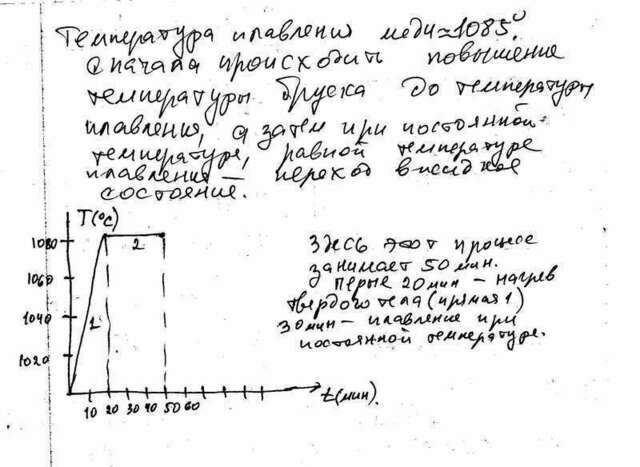 Температура плавления меди ≈ 1085°.
Сначала происходить повышение
температуры бруска до температуры
плавления, а затем при постоянной
температуре, равной температуре
плавления — переход в жидкое
состояние.
T(°C)
1080
1060
1040
1020
2
1
10 20 30 40 50 60
t(мин).
Здесь этот процес
занимает 50 мин.
перые 20 мин — нагрев
твердого тела (прямая 1)
30 мин — плавление при
постоянной температуре.